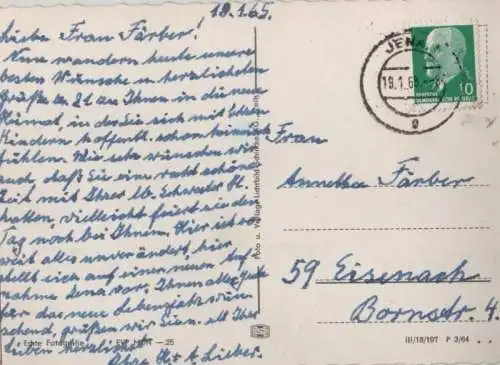 18.1.65.
Liebe Frau Färber!
Nun wandern heute unsere
besten Wünsche u. herzlichsten
Grüße zu Ihnen in die neue
Heimat, in der Sie sich mit Ihren
Kindern hoffentl. schon heimisch
fühlen. Wir wünschen
auch, daß Sie eine recht schöne
Zeit mit Ihrer lb. Schwester
hatten, vielleicht feiert sie den
Tag noch bei Ihnen. Hier ist so
weit alles unverändert, hier
stellt sich auf einen neuen
Jena war. Ihnen alles Gute
für das neue Lebensjahr wün-
schend, grüßen wir Sie u. all Ihre
Lieben herzlichst
Ihre H. + A. Lieber.
Echte Fotografie
25
Foto u. Verlag Lichtbild
JENA
19.1.65
g
DEUTSCHE
DEMOKRATISCHE REPUBLIK
10
Frau
Annetha Färber
59 Eisenach
Bornstr. 4.
III/18/197 P 3/64